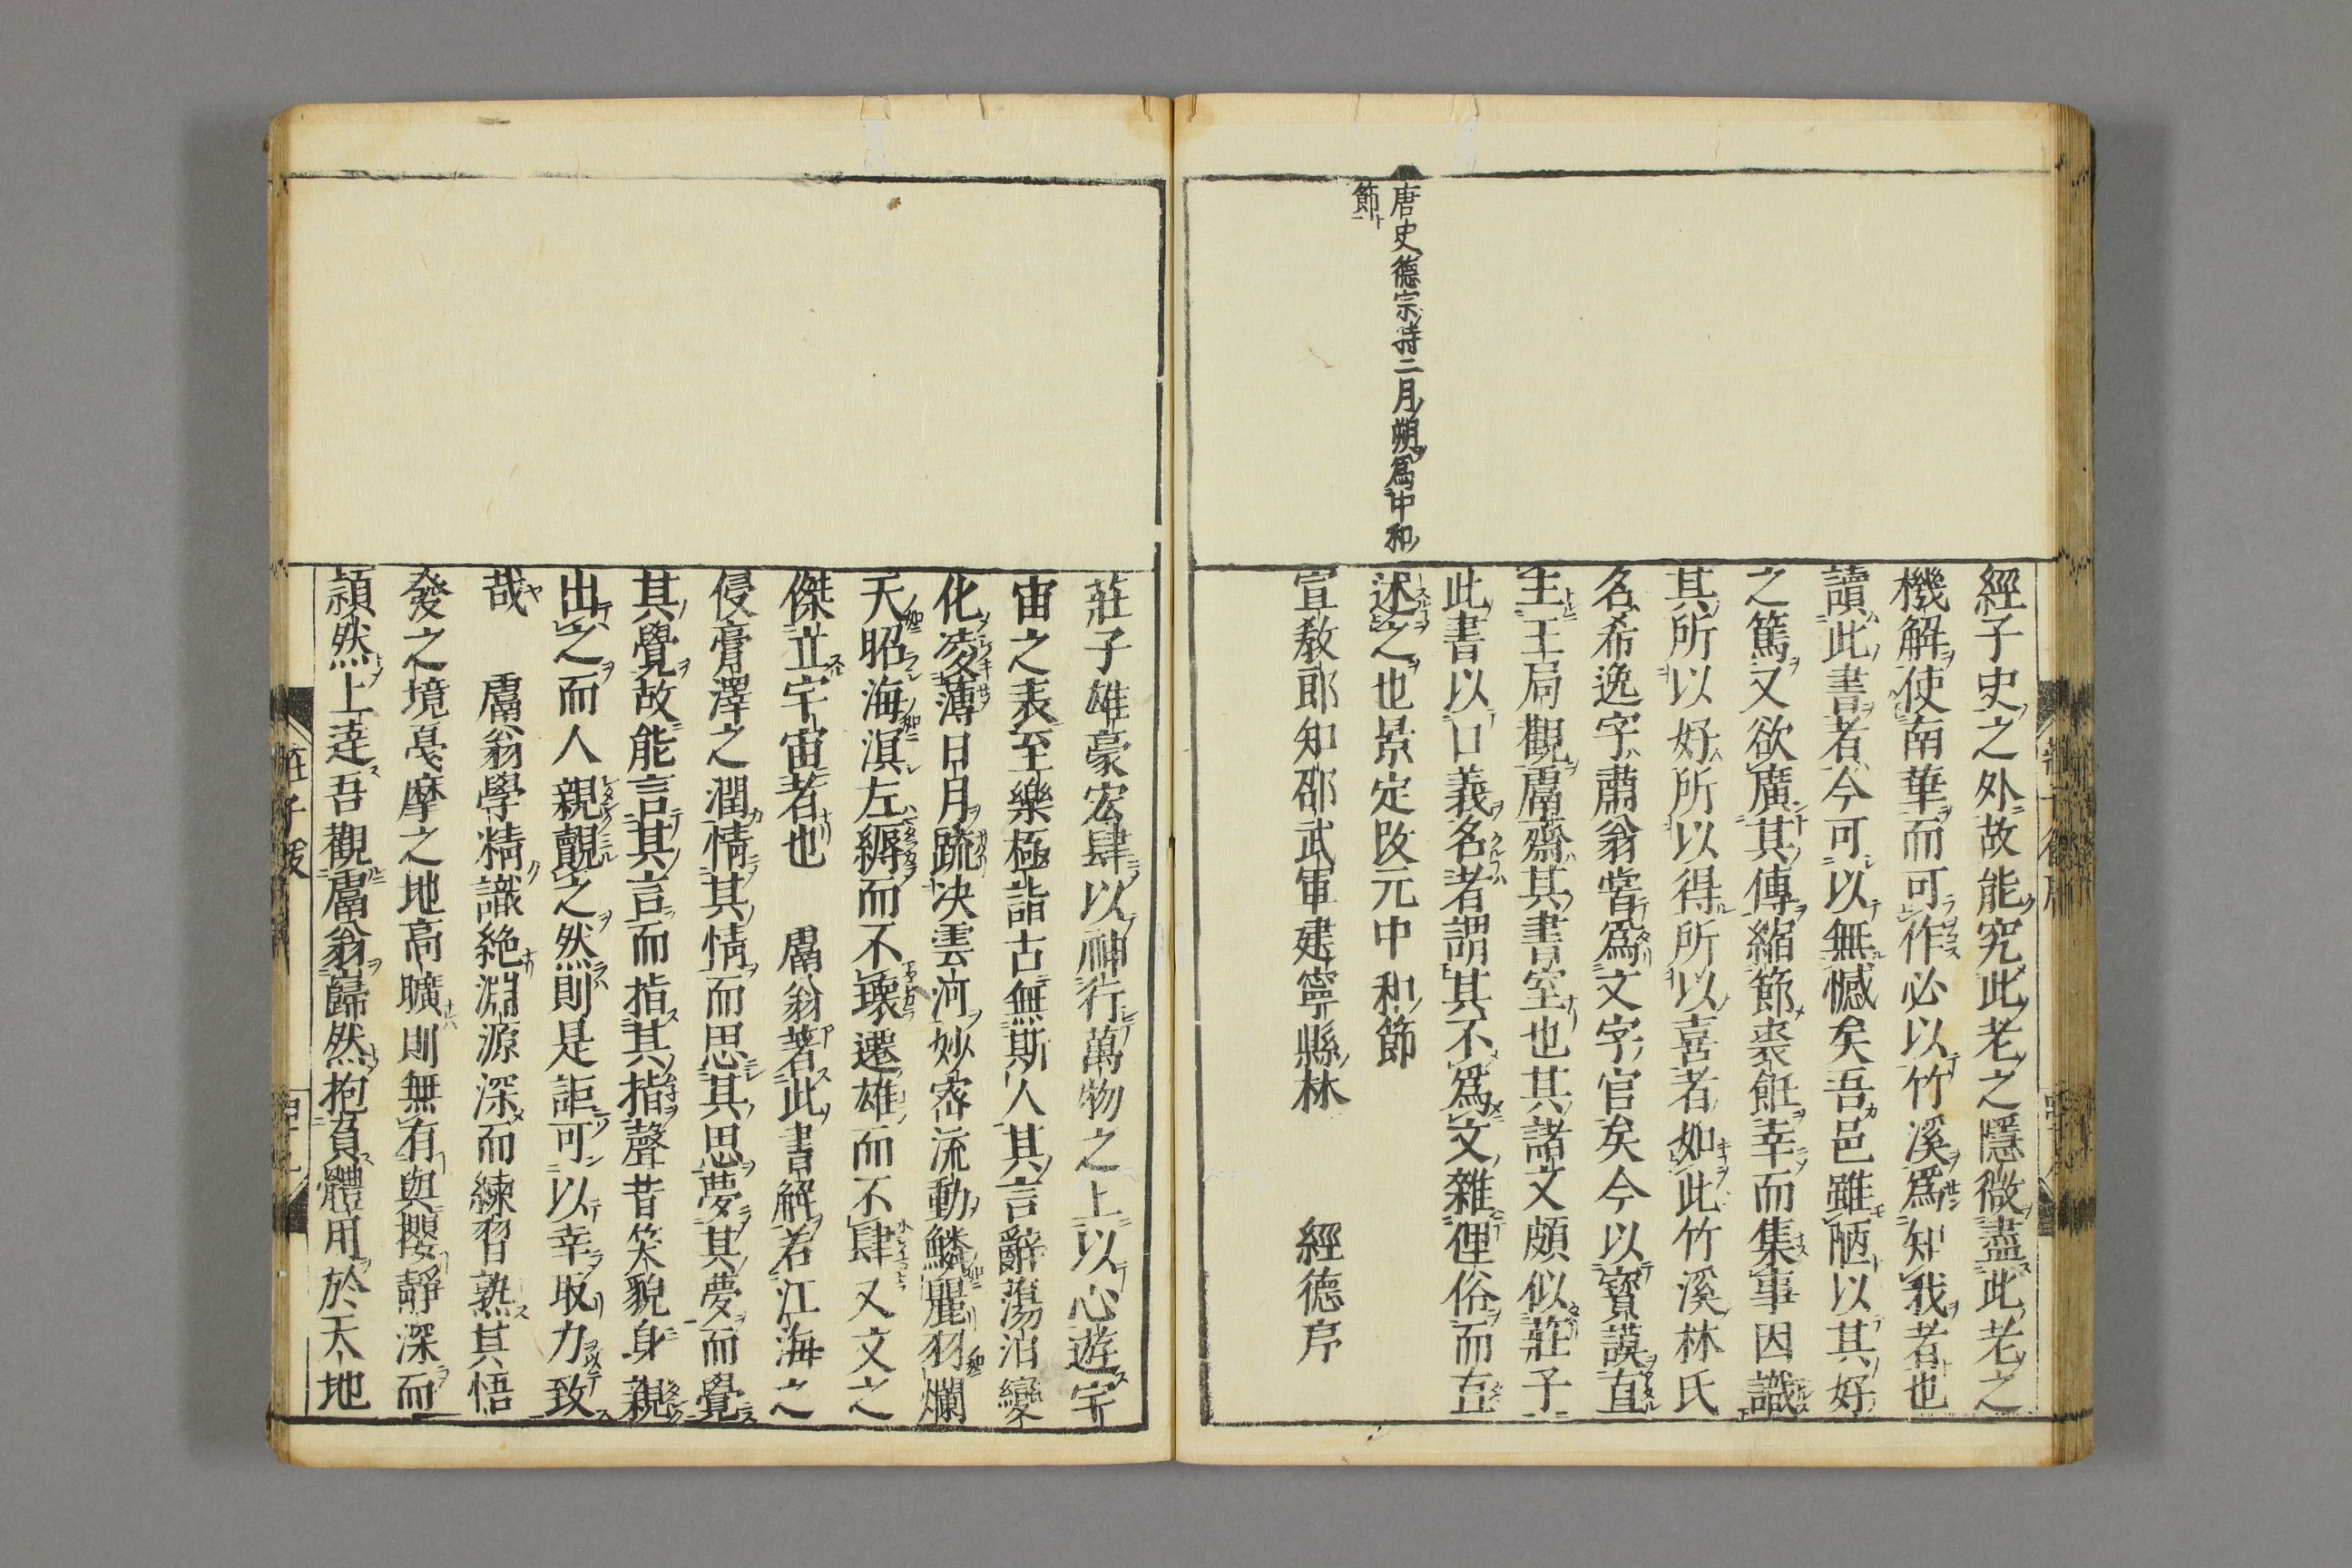 唐史德宗時二月朔爲中和
節
經子史之外故能究此老之隱微盡此老之
機解使南華而可作必以竹溪爲知我者也
讀此書者今可以無憾矣吾邑雖陋以其好
之篤又欲廣其傳縮節裘餁幸而集事因識
其所以好所以得所以喜者如此竹溪林氏
名希逸字肅翁嘗爲文字官矣今以寳謨直
主王局觀鬳齋其書室也其諸文頗似莊子
此書以口義名者謂其不爲文雜俚俗而直
述之也景定改元中和節
宣教郎知邵武軍建寧縣林　經德序
莊子雄豪宏肆以神行萬物之上以心遊宇
宙之表至樂極詣古無斯人其言辭蕩汨變
化凌薄日月疏决雲河妙宻流動鱗麗羽爛
天昭海溟左縟而不瓌遷雄而不肆又文之
傑立宇宙者也　鬳翁著此書解若江海之
侵膏澤之潤情其情而思其思夢其夢而覺
其覺故能言其言而指其指聲昔笑貌身親
出之而人親覿之然則是詎可以幸取力致
哉　鬳翁學精識絶淵源深而練習熟其悟
發之境戞摩之地高曠則無有與攖靜深而
頴然上達吾觀鬳翁巋然抱負體用於天地
莊子跋